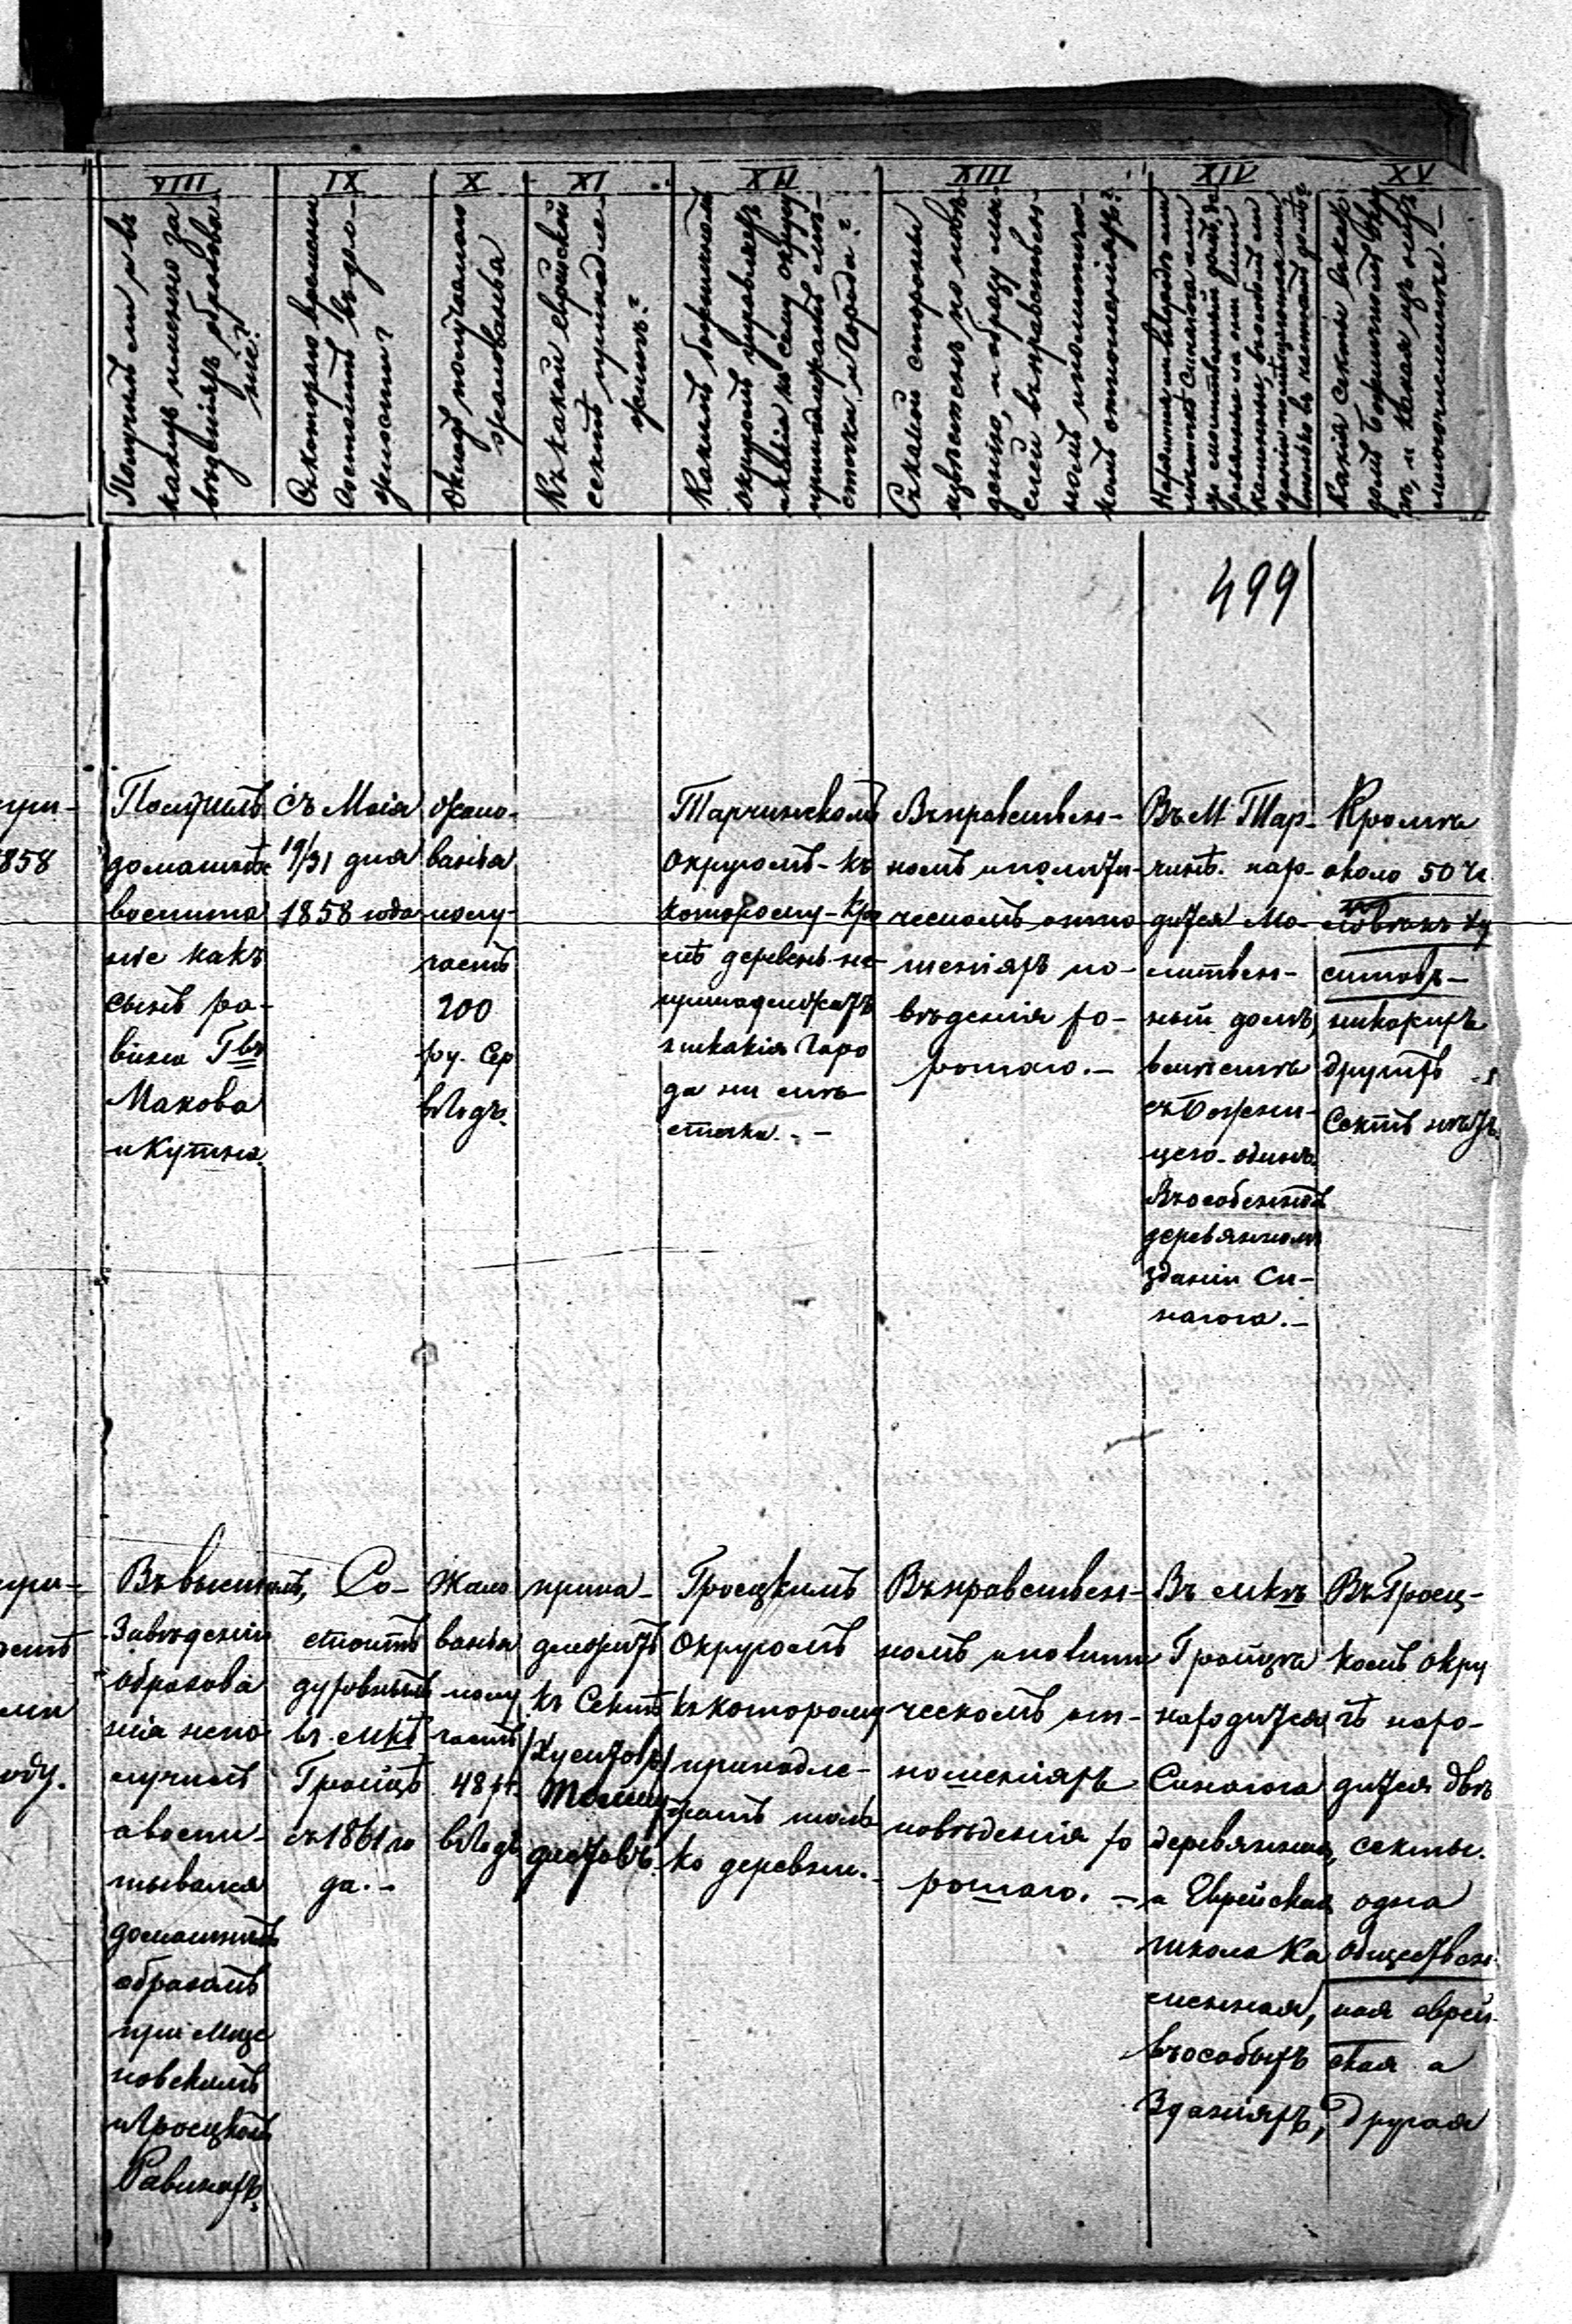 VIII
IX
X
XI
XII
XIII
XIV
XV
Получилъ ли и въ
какихъ именно за
веденіяхъ образова-
ніе?
Съ котораго времени
состоитъ въ дол-
жности?
Окладъ получаемаго
жалованья
Къ какой еврейской
сектѣ принадле-
житъ?
Какимъ божничнымъ
округомъ управляетъ
и какія къ сему округу
принадлежатъ мѣ-
стечки и города?
Съ какой стороны
извѣстенъ по повѣ-
денію, и образу мы-
слей въ нравствен-
номъ и политиче-
скомъ отношеніяхъ?
Какія секты
и какая изъ нихъ
многочисленнѣе.
499
при-
1858
Получилъ
домашнее
воспита
ніе какъ
сынъ ра-
вина Гвъ
Макова
и Кутна.
Съ Маія
19/31 дня
1858 года
жало-
ванья
полу-
чаетъ
200
ру. сер
въ годъ.
Тарчинскомъ
Округомъ - къ
которому - кро
мѣ деревень не
принадлежатъ
никакія горо
да ни мѣ-
стечки. -
Въ нравствен-
номъ и полити-
ческомъ отно
шеніяхъ по-
вѣденія хо-
рошаго. -
Въ М. Тар-
чинѣ. нахо-
дится Мо-
литвен-
ный домъ,
вмѣстѣ
съ Божни-
цею одинъ.
Въ особенномъ
деревянномъ
зданіи Си-
нагога. -
Кромѣ
около 50 че
ловѣкъ Ху
ситовъ -
никакихъ
другихъ
Сектъ нѣтъ.
при-
оду.
Въ высшемъ,
Завѣденіи
образова
нія непо
лучилъ
а воспи-
тывался
домашнимъ
образомъ
при Мще
новскомъ
и Гроецкомъ
Равинахъ.
Со-
стоитъ
духовнымъ
въ мкѣ
Гройцѣ
съ 1861 го
да. -
Жало
ванья
полу
чаетъ
48 р.
въ годъ
прина-
длежитъ
къ Сектѣ
Хуситовъ
Гроецкимъ
Округомъ
къ которому
принадле-
жатъ толь
ко деревни. -
Въ нравствен-
номъ и полити
ческомъ от-
ношеніяхъ
повѣденія хо
рошаго. -
Въ мкѣ
Гройцѣ
находится
Синагога
деревянная,
а Еврейская
школа Ка
менная,
въ особыхъ
Зданіяхъ,
Въ Гроец-
комъ Окру
гѣ нахо-
дится двѣ
секты.
одна
обществен-
ная еврей-
ская а
другая